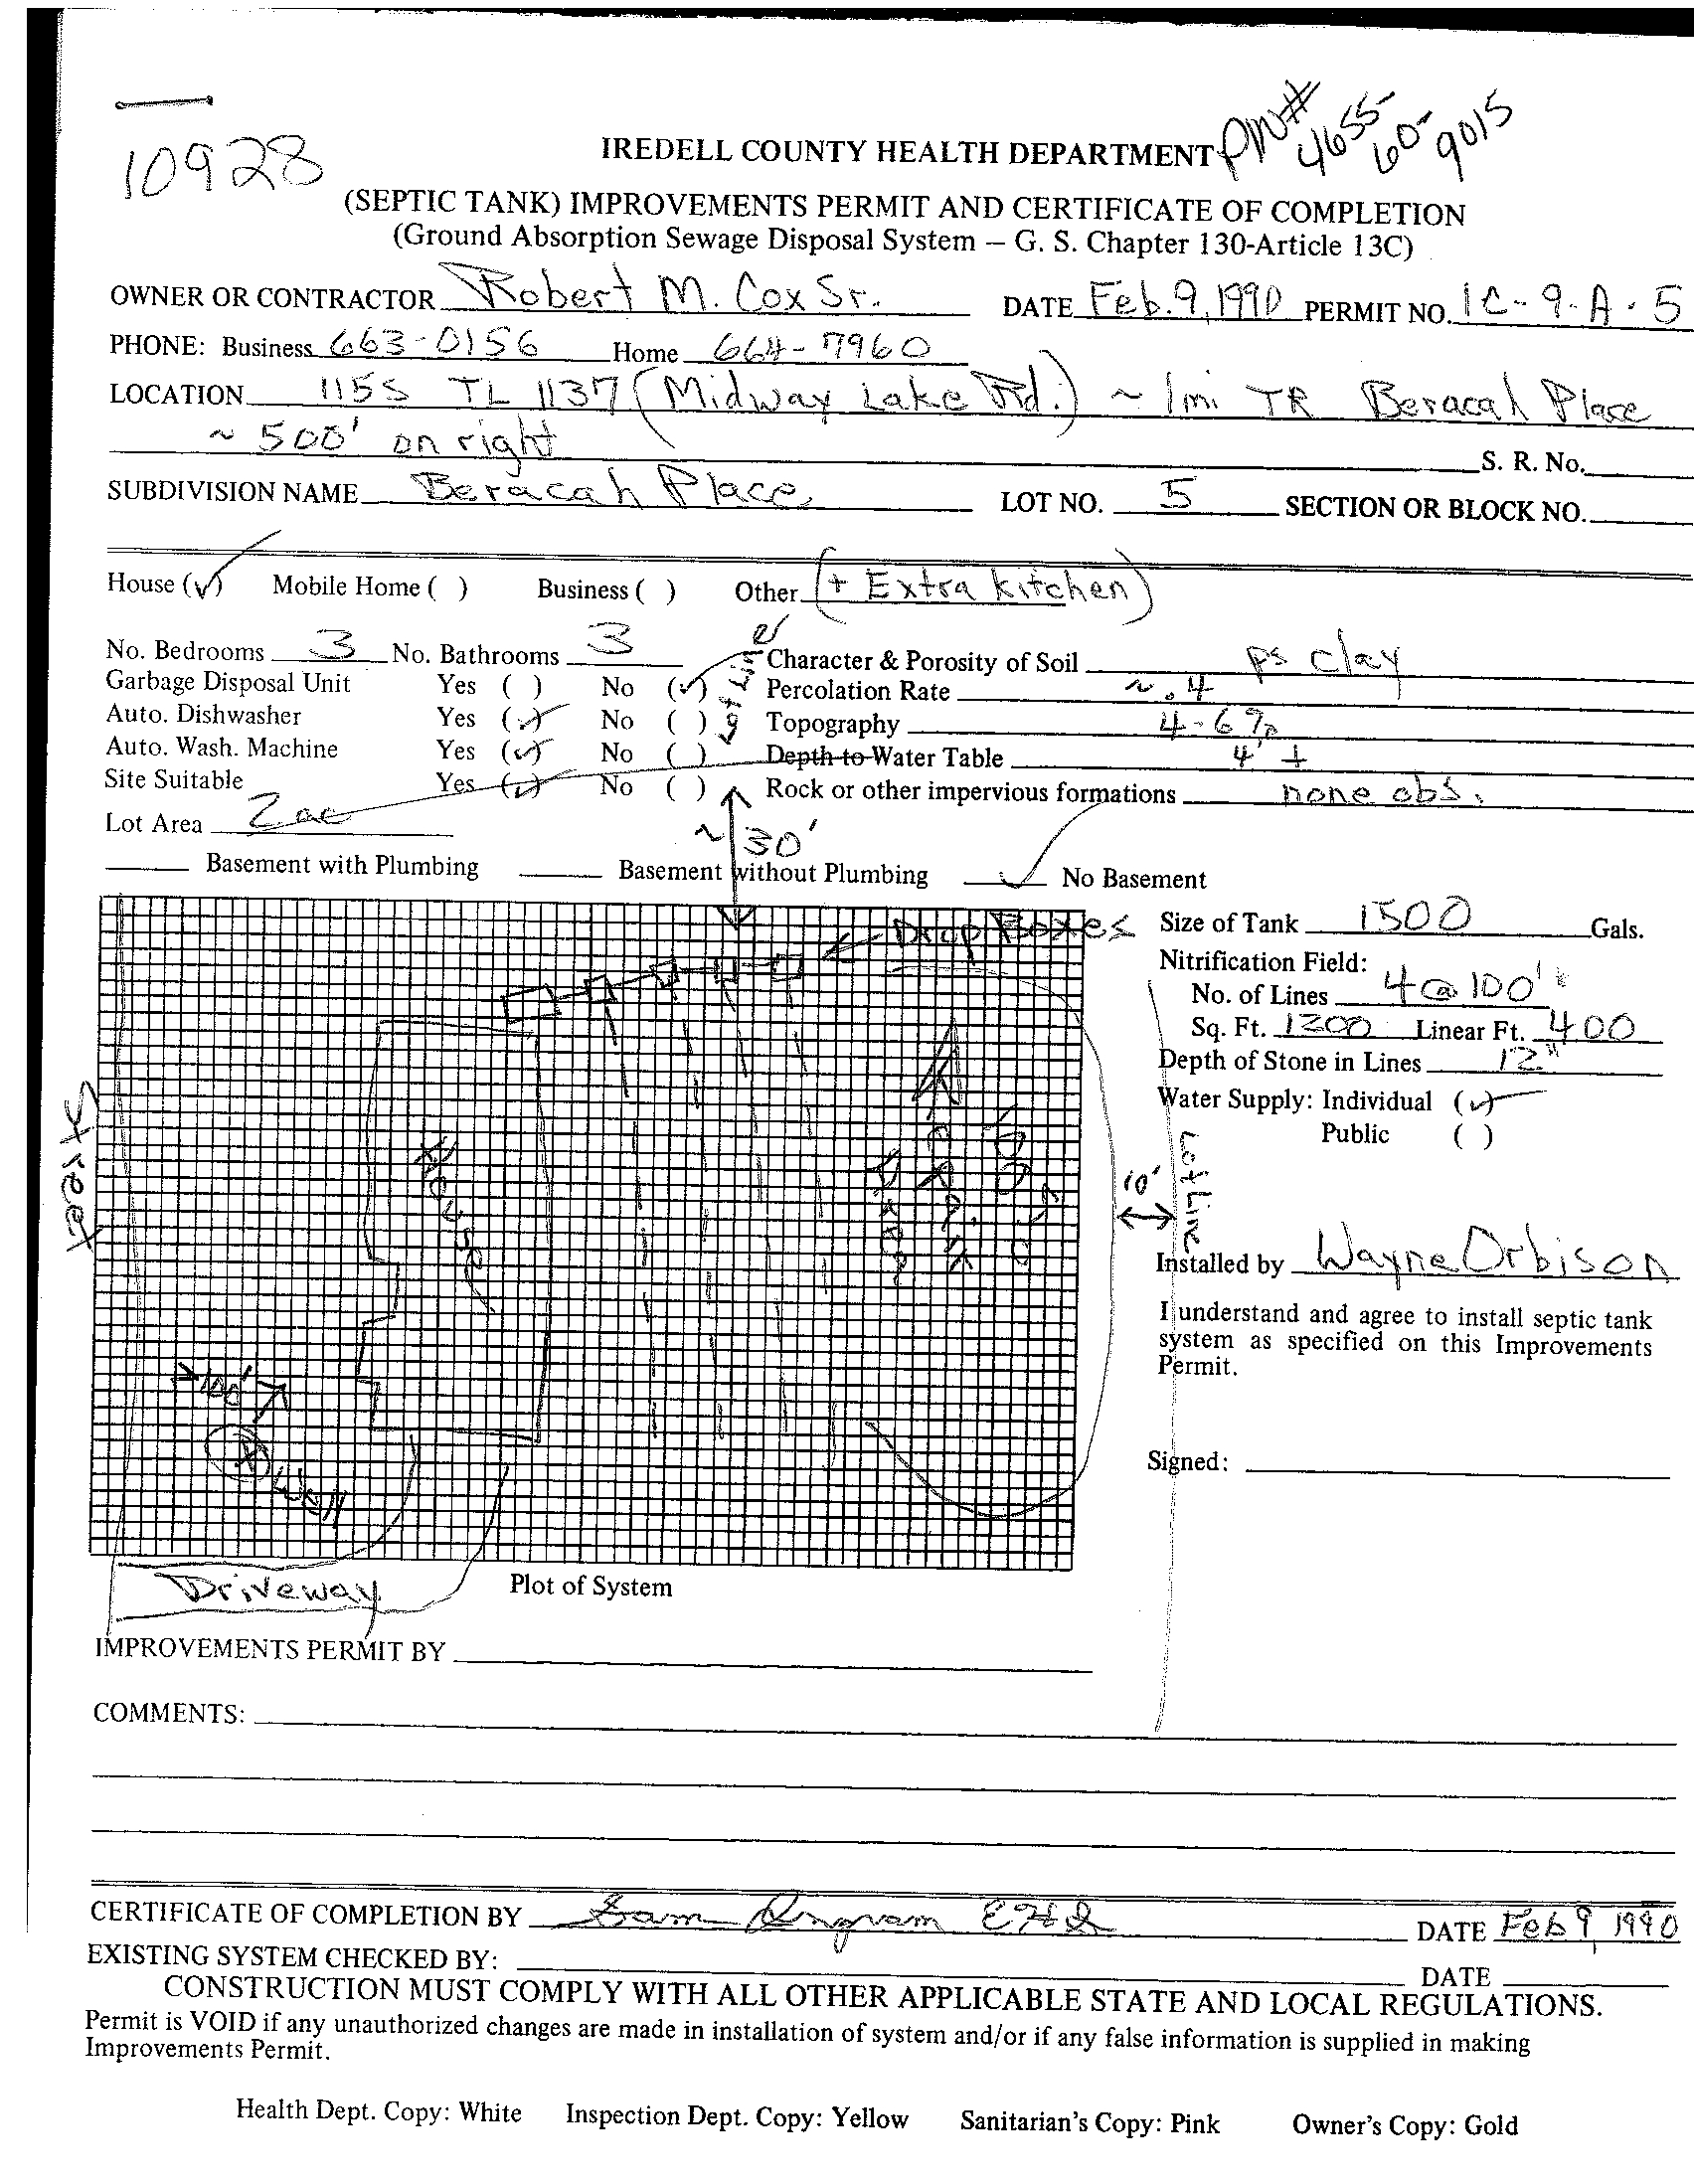 10928
PIN# 4655-60-9015
IREDELL COUNTY HEALTH DEPARTMENT
(SEPTIC TANK) IMPROVEMENTS PERMIT AND CERTIFICATE OF COMPLETION
(Ground Absorption Sewage Disposal System – G. S. Chapter 130-Article 13C)
OWNER OR CONTRACTOR Robert M. Cox Sr. DATE Feb. 9, 1990 PERMIT NO. IC-9-A-5
PHONE: Business 663-0156 Home 664-7960
LOCATION 115S TL 1137 (Midway Lake Rd.) ~ 1mi TR Beracah Place
~ 500' on right S. R. No.
SUBDIVISION NAME Beracah Place LOT NO. 5 SECTION OR BLOCK NO.
House (✓) Mobile Home ( ) Business ( ) Other (+ Extra kitchen)
No. Bedrooms 3 No. Bathrooms 3 Character & Porosity of Soil ps clay
Garbage Disposal Unit Yes ( ) No (✓) Percolation Rate ~.4
Auto. Dishwasher Yes (✓) No ( ) Topography 4-6%
Auto. Wash. Machine Yes (✓) No ( ) Depth to Water Table 4'+
Site Suitable Yes (✓) No ( ) Rock or other impervious formations none obs.
Lot Line
Lot Area 2ac
~30'
Basement with Plumbing Basement without Plumbing ✓ No Basement
Drop Boxes
Size of Tank 1500 Gals.
Nitrification Field:
No. of Lines 4@100'
Sq. Ft. 1200 Linear Ft. 400
Depth of Stone in Lines 12"
Water Supply: Individual (✓)
Public ( )
Street
House
10'
Lot Line
Installed by Wayne Orbison
I understand and agree to install septic tank
system as specified on this Improvements
Permit.
100'
Well
Signed:
Driveway
Plot of System
IMPROVEMENTS PERMIT BY
COMMENTS:
CERTIFICATE OF COMPLETION BY Sam Ingram EHS DATE Feb 9, 1990
EXISTING SYSTEM CHECKED BY: DATE
CONSTRUCTION MUST COMPLY WITH ALL OTHER APPLICABLE STATE AND LOCAL REGULATIONS.
Permit is VOID if any unauthorized changes are made in installation of system and/or if any false information is supplied in making
Improvements Permit.
Health Dept. Copy: White Inspection Dept. Copy: Yellow Sanitarian's Copy: Pink Owner's Copy: Gold